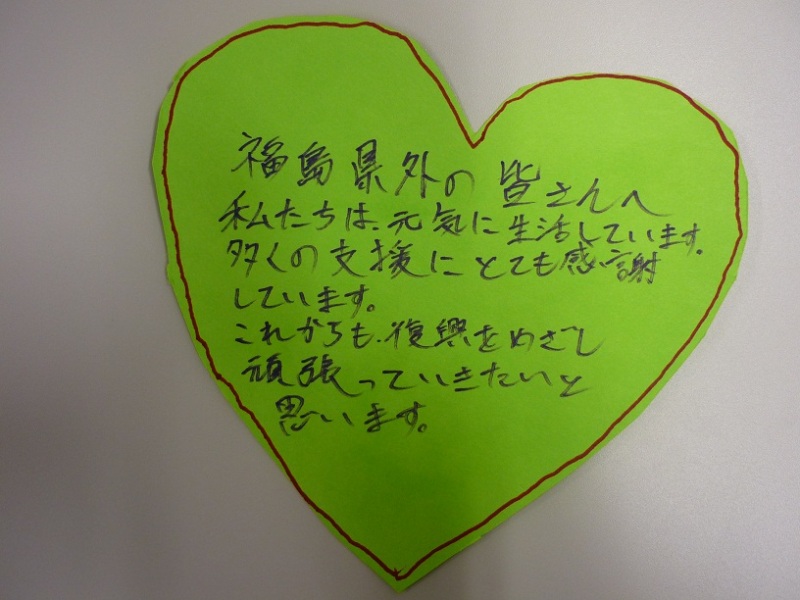 福島県外の皆さんへ
私たちは、元気に生活しています。
多くの支援にとても感謝
しています。
これからも、復興をめざし
頑張っていきたいと
思います。